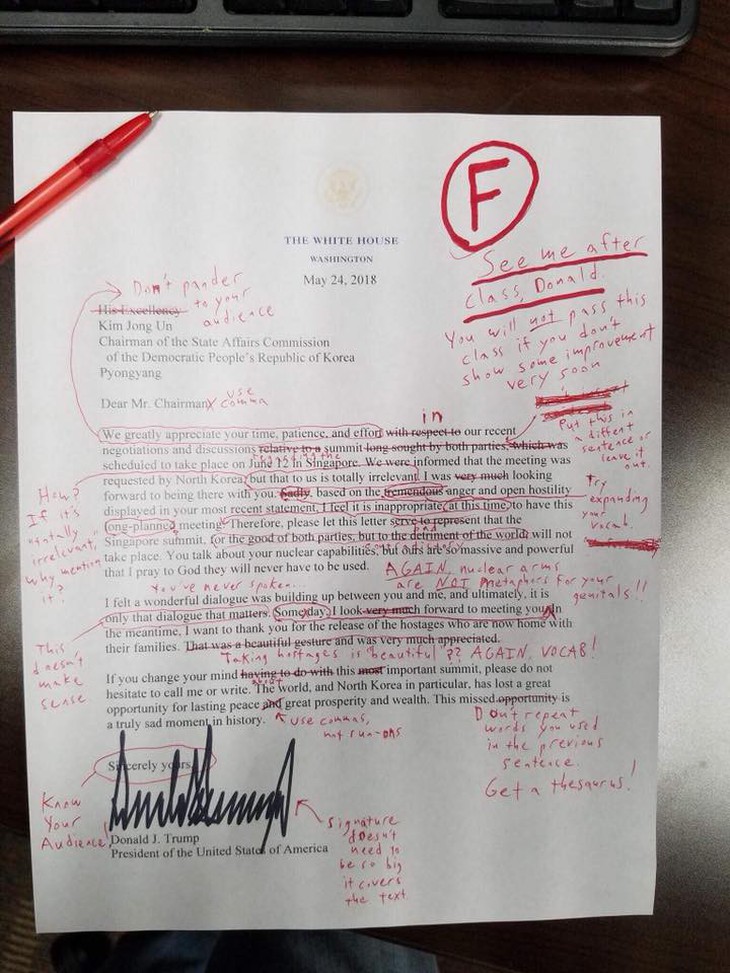 F
See me after
class, Donald.
You will not pass this
class if you don't
show some improvement
very soon
THE WHITE HOUSE
WASHINGTON
May 24, 2018
Don't pander
to your
audience
His Excellency
Kim Jong Un
Chairman of the State Affairs Commission
of the Democratic People's Republic of Korea
Pyongyang
Dear Mr. Chairman:
use
comma
in
We greatly appreciate your time, patience, and effort with respect to our recent
negotiations and discussions relative to a summit long sought by both parties, which was
regarding the
scheduled to take place on June 12 in Singapore. We were informed that the meeting was
requested by North Korea, but that to us is totally irrelevant. I was very much looking
forward to being there with you. Sadly, based on the tremendous anger and open hostility
displayed in your most recent statement, I feel it is inappropriate, at this time, to have this
long-planned meeting. Therefore, please let this letter serve to represent that the
Singapore summit, for the good of both parties, but to the detriment of the world, will not
take place. You talk about your nuclear capabilities, but ours are so massive and powerful
that I pray to God they will never have to be used.
Put this in
a different
sentence or
leave it
out.
Try
expanding
your
vocab.
How?
If it's
"totally
irrelevant,"
why mention
it?
AGAIN, nuclear arms
are NOT metaphors for your
genitals!!
You've never spoken...
I felt a wonderful dialogue was building up between you and me, and ultimately, it is
only that dialogue that matters. Some day, I look very much forward to meeting you. In
the meantime, I want to thank you for the release of the hostages who are now home with
their families. That was a beautiful gesture and was very much appreciated.
This
doesn't
make
sense
Taking hostages is beautiful?? AGAIN, VOCAB!
If you change your mind having to do with this most important summit, please do not
about
hesitate to call me or write. The world, and North Korea in particular, has lost a great
opportunity for lasting peace and great prosperity and wealth. This missed opportunity is
a truly sad moment in history.
use commas,
not run-ons
Don't repeat
words you used
in the previous
sentence.
Get a thesaurus!
Sincerely yours,
Know
Your
Audience!
Donald J. Trump
President of the United States of America
Signature
doesn't
need to
be so big
it covers
the text.